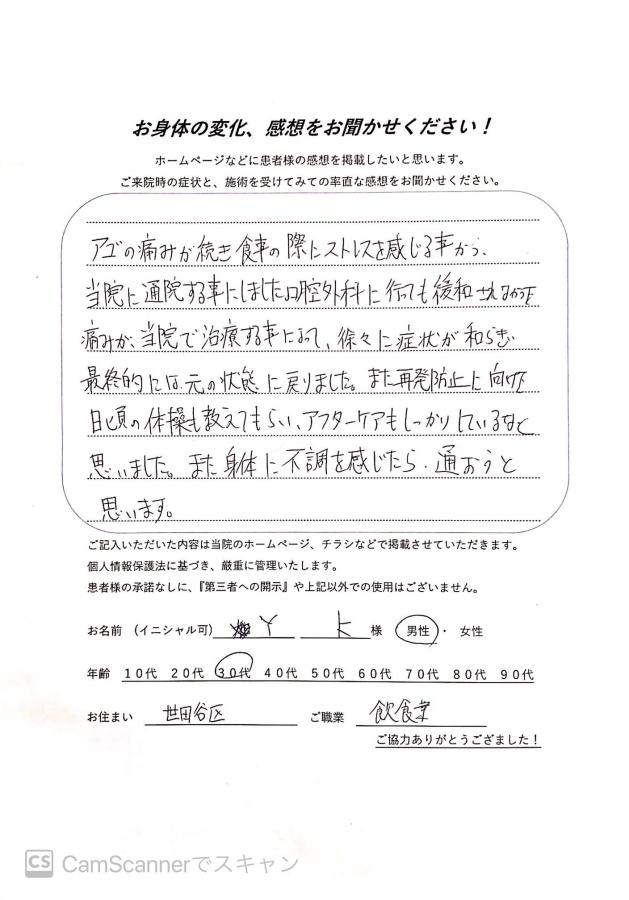 お身体の変化、感想をお聞かせください！
ホームページなどに患者様の感想を掲載したいと思います。
ご来院時の症状と、施術を受けてみての率直な感想をお聞かせください。
アゴの痛みが続き食事の際にストレスを感じる事から、
当院に通院する事にしました。口腔外科に行っても緩和されなかった
痛みが、当院で治療する事によって、徐々に症状が和らぎ
最終的には元の状態に戻りました。また再発防止に向けて
日頃の体操も教えてもらい、アフターケアもしっかりしているなと
思いました。また身体に不調を感じたら、通おうと
思います。
ご記入いただいた内容は当院のホームページ、チラシなどで掲載させていただきます。
個人情報保護法に基づき、厳重に管理いたします。
患者様の承諾なしに、『第三者への開示』や上記以外での使用はございません。
お名前 （イニシャル可） Y K 様 男性・ 女性
年齢 10代 20代 30代 40代 50代 60代 70代 80代 90代
お住まい 世田谷区 ご職業 飲食業
ご協力ありがとうござました！
CS CamScannerでスキャン